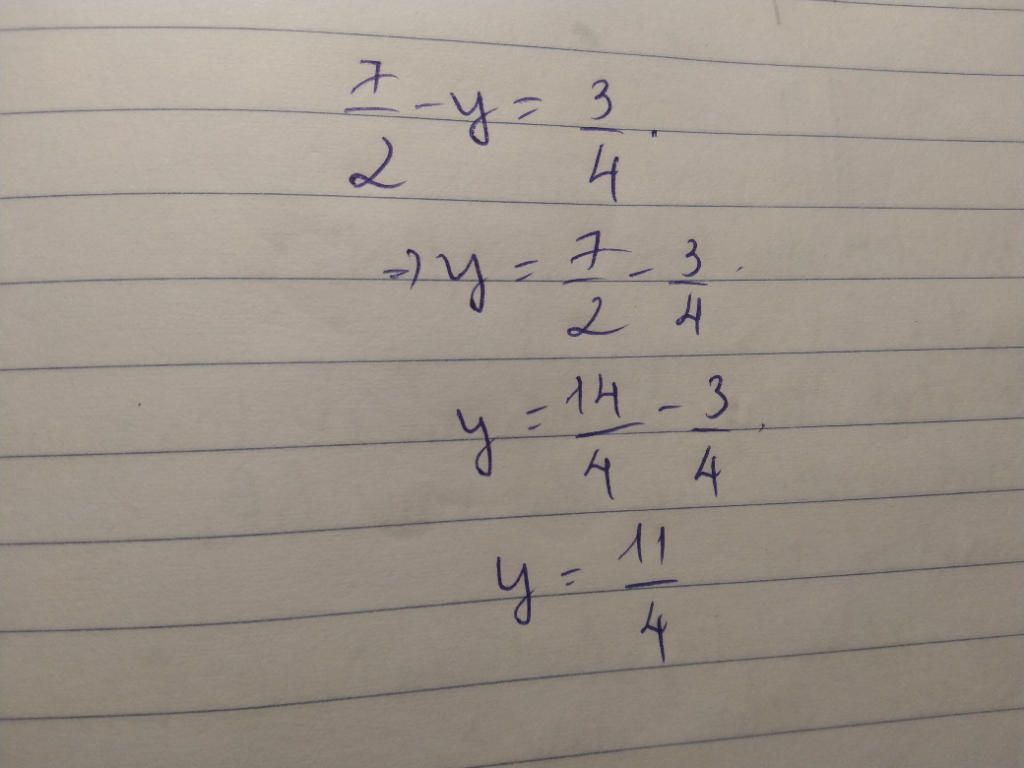 7/2 - y = 3/4.
⇒ y = 7/2 - 3/4.
y = 14/4 - 3/4.
y = 11/4